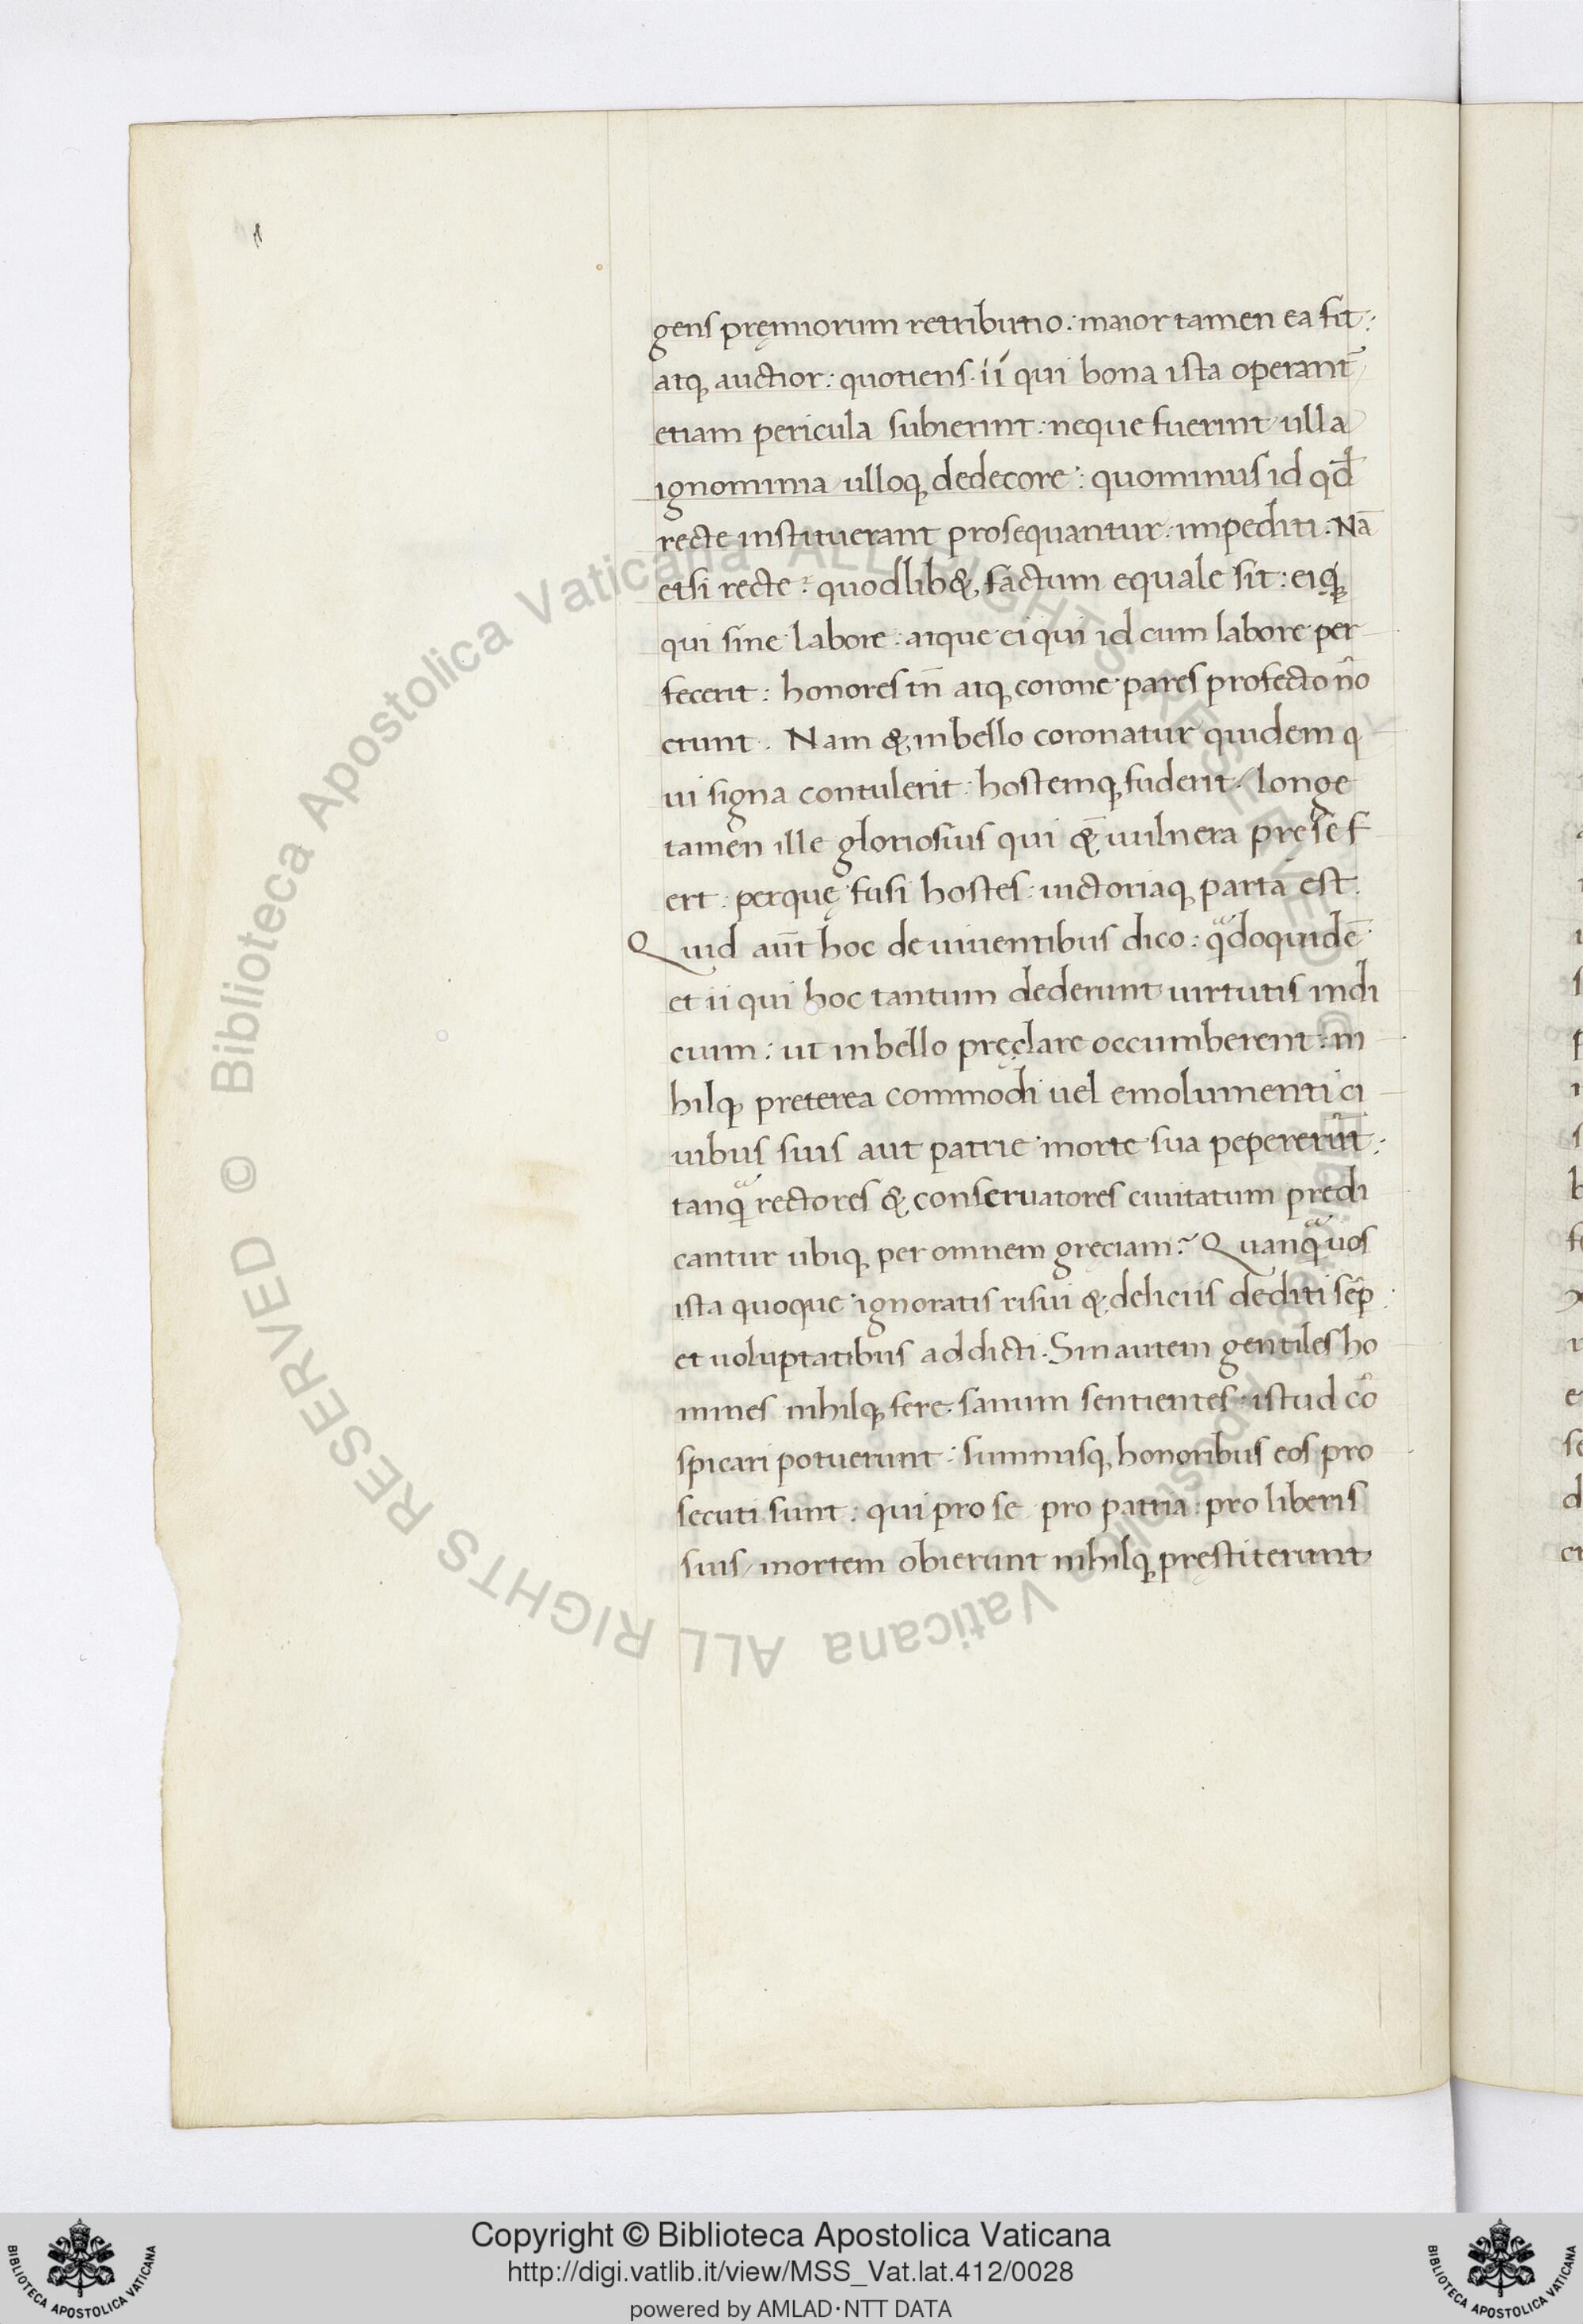 gens pręmiorum retributio: maior tamen ea fit:
atq; auctior: quotiens. íí qui bona ista operant̄
etiam pericula subierint: neque fuerint ulla
ignominia ulloq; dedecore: quominus id qd̄
recte instituerant prosequantur: impediti. Nā
etsi recte: quodlib&, factum equale sit: eiq;
qui sine labore: atque ei qui id cum labore per
fecerit: honores tn̄ atq; corone pares profecto nō
erunt. Nam & in bello coronatur quidem q
ui signa contulerit: hostemq; fuderit / longe
tamen ille gloriosius qui &̄ uulnera prę se f
ert: perquę fusi hostes: uictoriaq; parta est.
Quid aut̄ hoc de uiuentibus dico: qᵃdoquidē
et ii qui hoc tantum dederunt uirtutis indi
cium: ut in bello pręclare occumberent: ni
hilq; preterea commodi uel emolumenti ci
uibus suis aut patrie morte sua pepererint̄:
tanqᵃ rectores & conseruatores ciuitatum predi
cantur ubiq; per omnem gręciam? Quanqᵃ uos
ista quoque ignoratis risui & deliciis dediti sēp
et uoluptatibus addicti. Sin autem gentiles ho
mines nihilq; fere sanum sentientes istud cō
spicari potuerunt: summisq; honoribus eos pro
secuti sunt: qui pro se pro patria: pro liberis
suis / mortem obierunt nihilq; pręstiterunt
Copyright © Biblioteca Apostolica Vaticana
http://digi.vatlib.it/view/MSS_Vat.lat.412/0028
powered by AMLAD·NTT DATA
BIBLIOTECA APOSTOLICA VATICANA
BIBLIOTECA APOSTOLICA VATICANA
© Biblioteca Apostolica Vaticana ALL RIGHTS RESERVED © Biblioteca Apostolica Vaticana ALL RIGHTS RESERVED